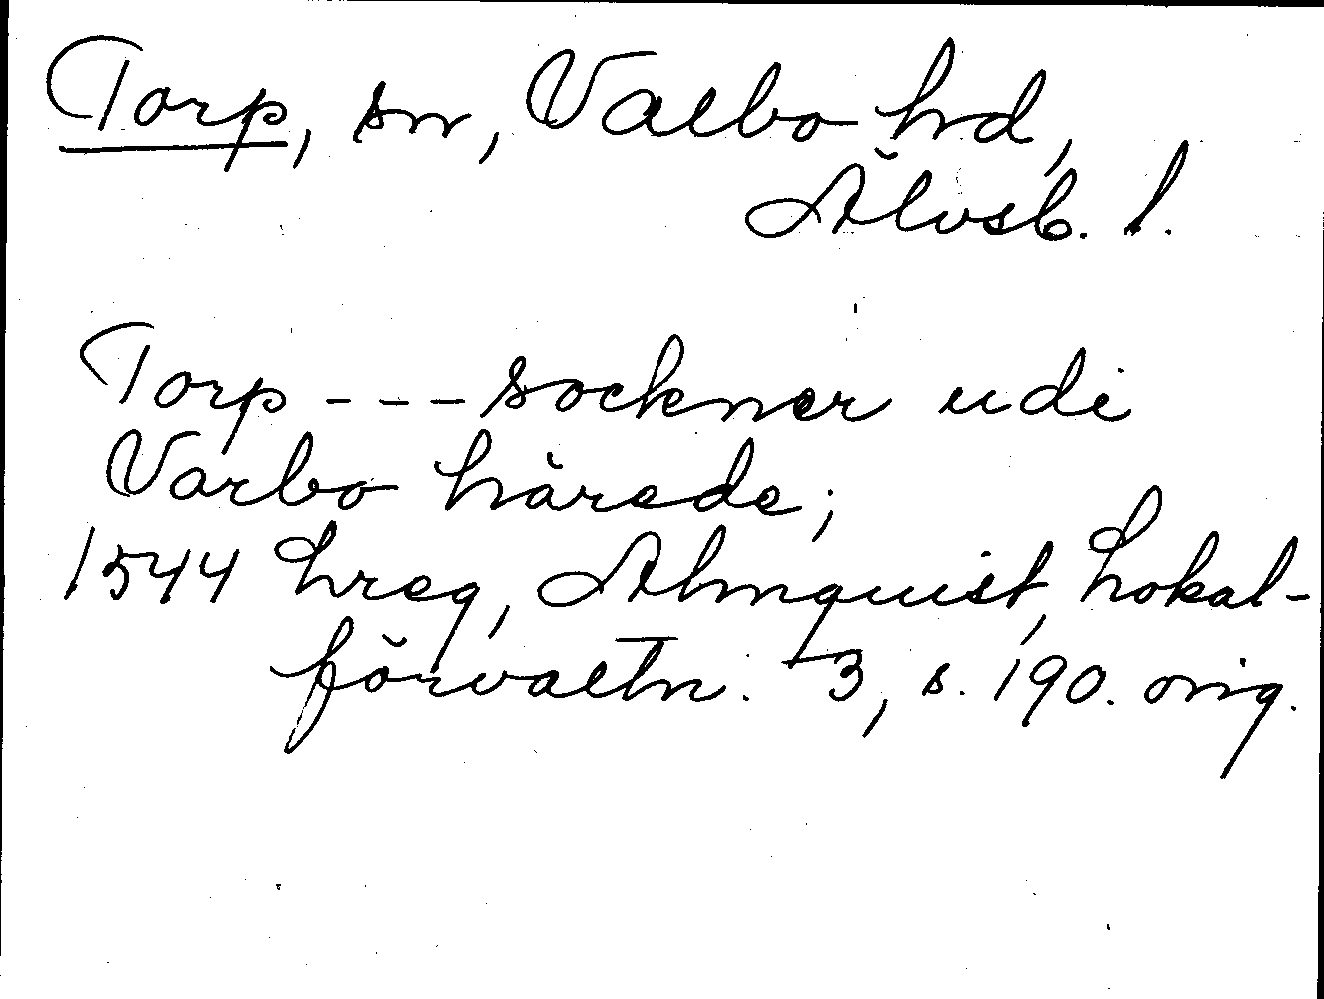 Torp, sn, Valbo hrd,
Älvsb. l.
Torp --- sockner udi
Varbo härede;
1544 hreg, Almquist, Lokal-
förvaltn. 3, s. 190. orig.